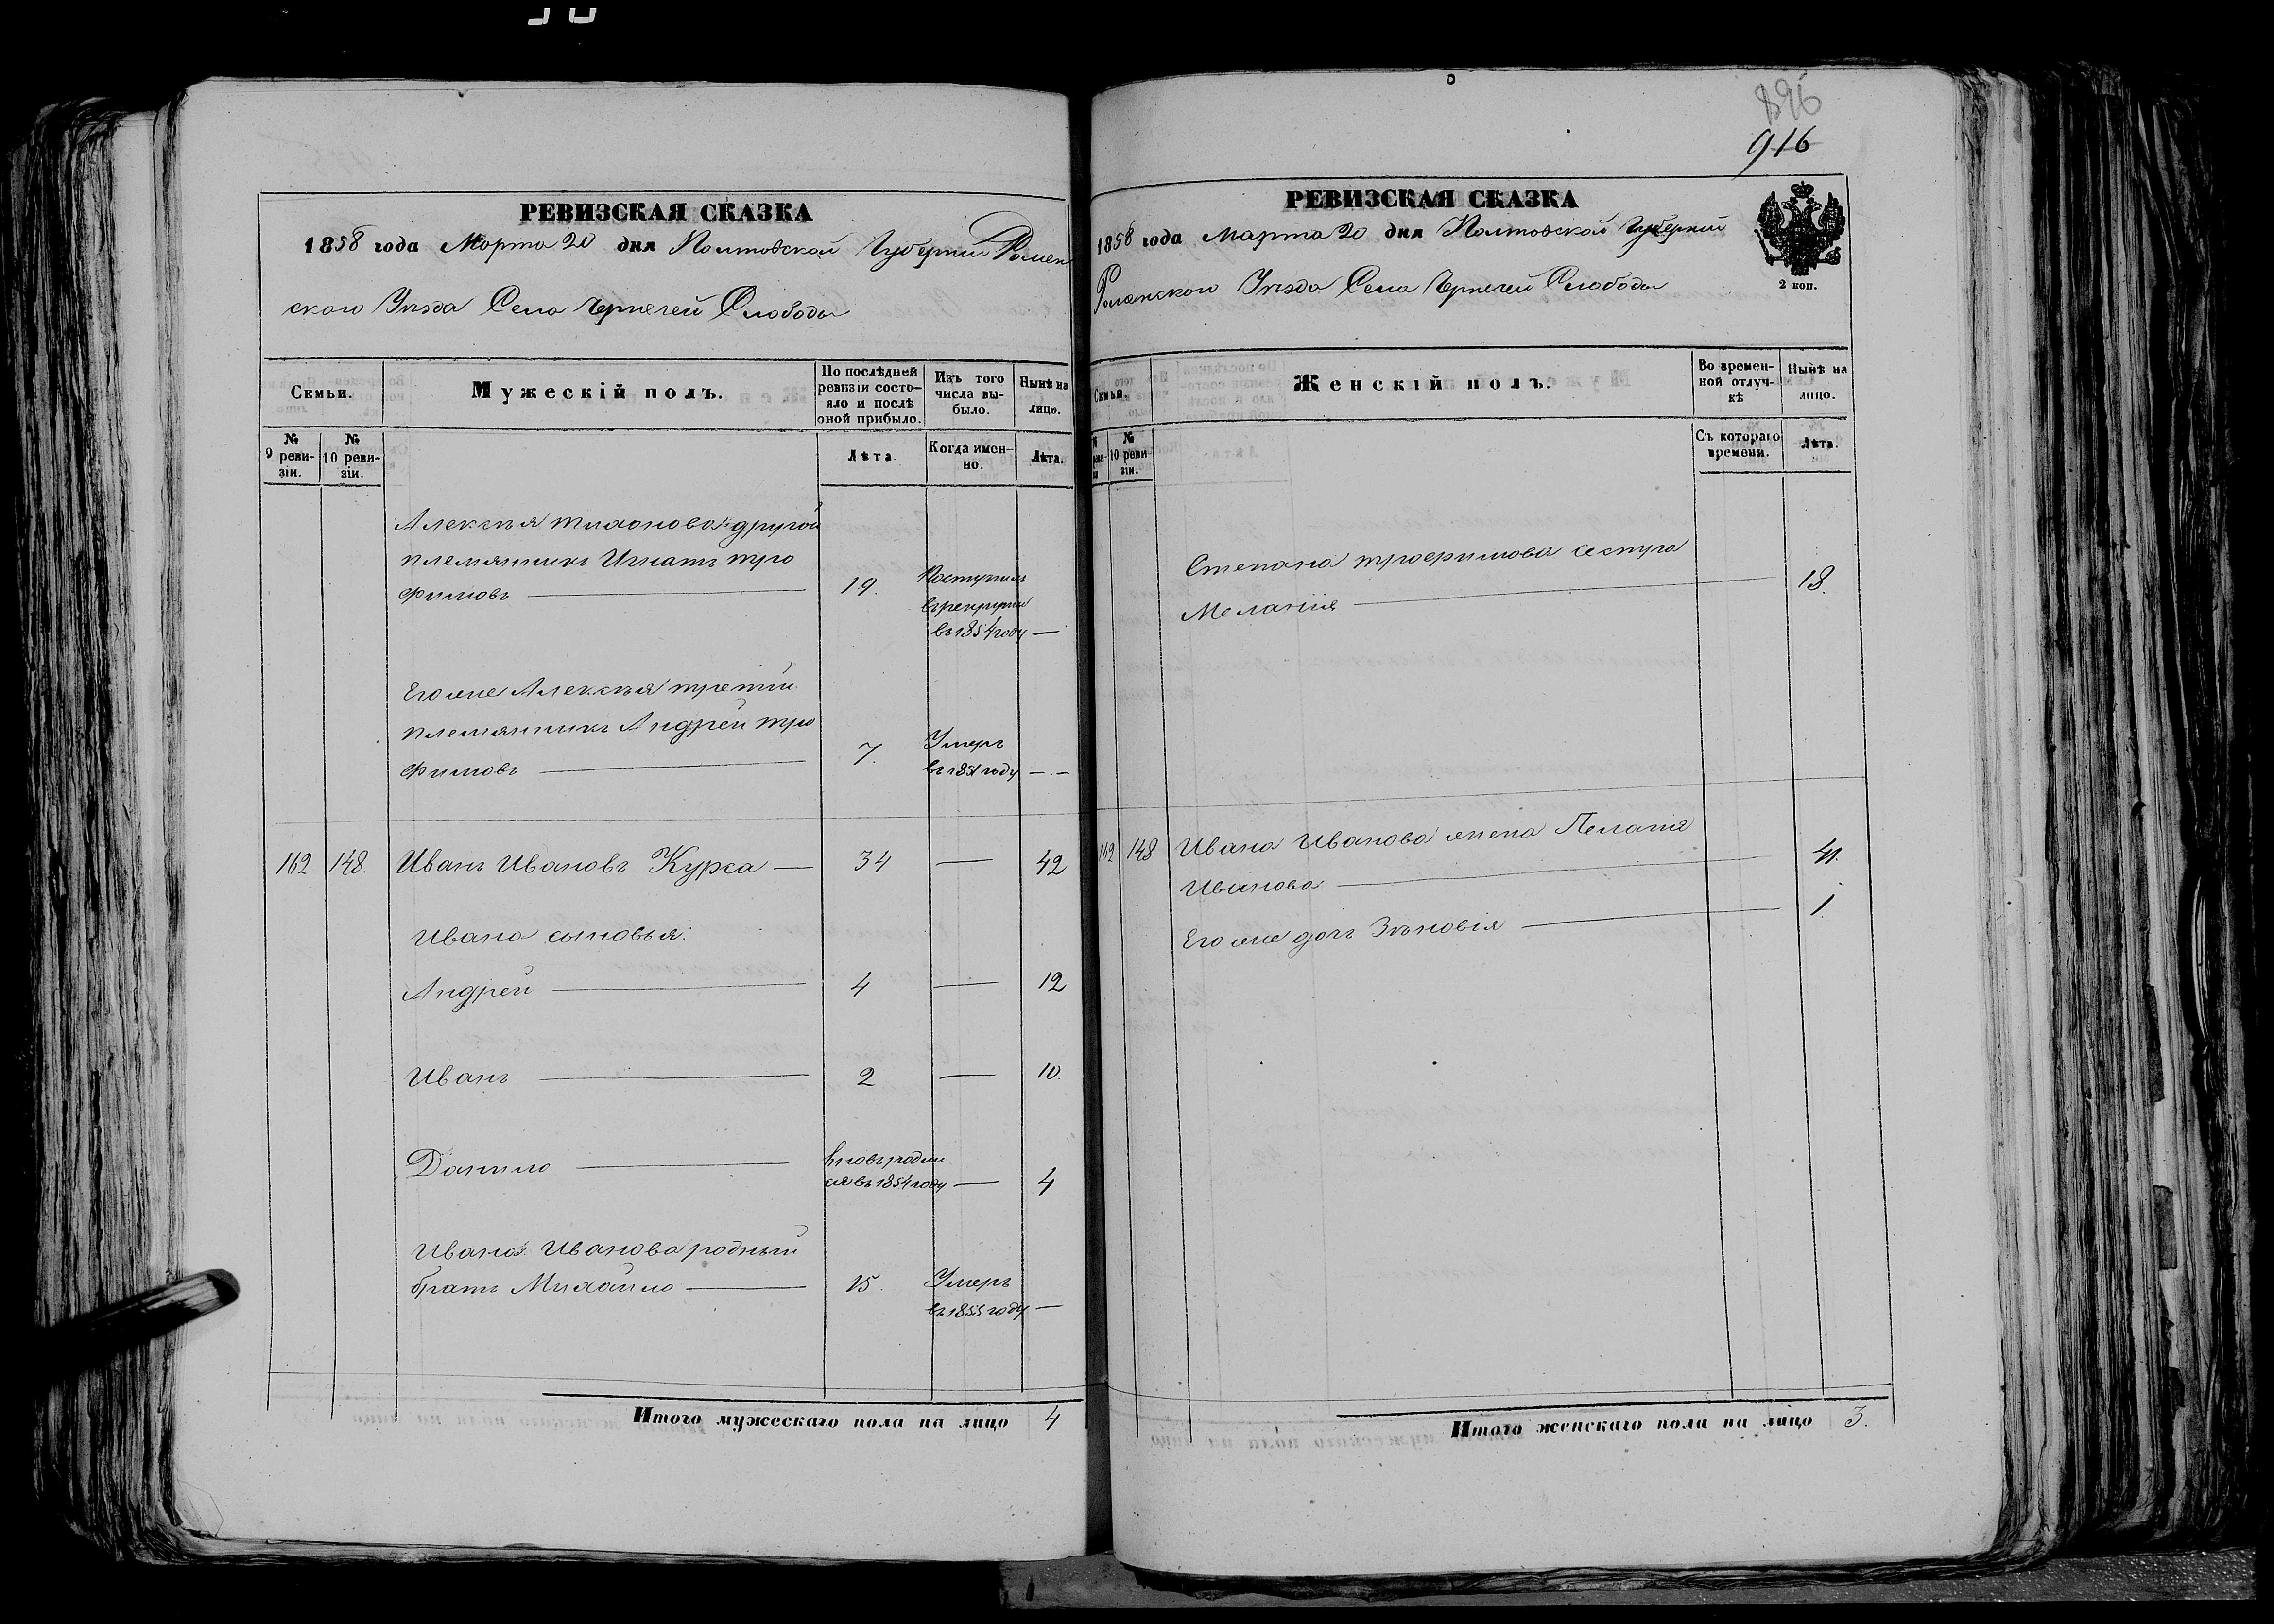 896
916
РЕВИЗСКАЯ СКАЗКА
1858 года Марта 20 дня Полтавской Губернии Ромен
ского Уѣзда Села Чернечей Слободы
Семьи.
Мужескій полъ.
По послѣдней ревизіи состояло и послѣ оной прибыло.
Изъ того числа выбыло.
Нынѣ на лицо.
№ 9 ревизіи.
№ 10 ревизіи.
Лѣта
Когда именно.
Лѣта.
Алексѣя другой
племянникъ Игнатъ Тро
фимовъ — 19. Поступилъ
въ рекруты
въ 1854 году —
Его же Алексѣя третій
племянникъ Андрей Тро
фимовъ — 7. Умеръ
въ 1851 году —
162 148. Иванъ Ивановъ Курка — 34 — 42
Ивана сыновья:
Андрей — 4 — 12
Иванъ — 2 — 10.
Данило — вновь родил
ся въ 1854 году — 4
Ивана Иванова родный
братъ Михайло — 15. Умеръ
въ 1855 году —
Итого мужескаго пола на лицо 4
РЕВИЗСКАЯ СКАЗКА
1858 года Марта 20 дня Полтавской Губерніи
Роменского Уѣзда Села Чернечей Слободы
2 коп.
Семьи.
Женскій полъ.
Во временной отлучкѣ
Нынѣ на лицо.
№ 10 ревизіи.
Съ котораго времени.
Лѣта.
Степана Трофимова сестра
Меланія — 18.
162 148 Ивана Иванова жена Пелагія
Иванова — 41.
Его же дочь Зѣновія — 1.
Итого женскаго пола на лицо 3.